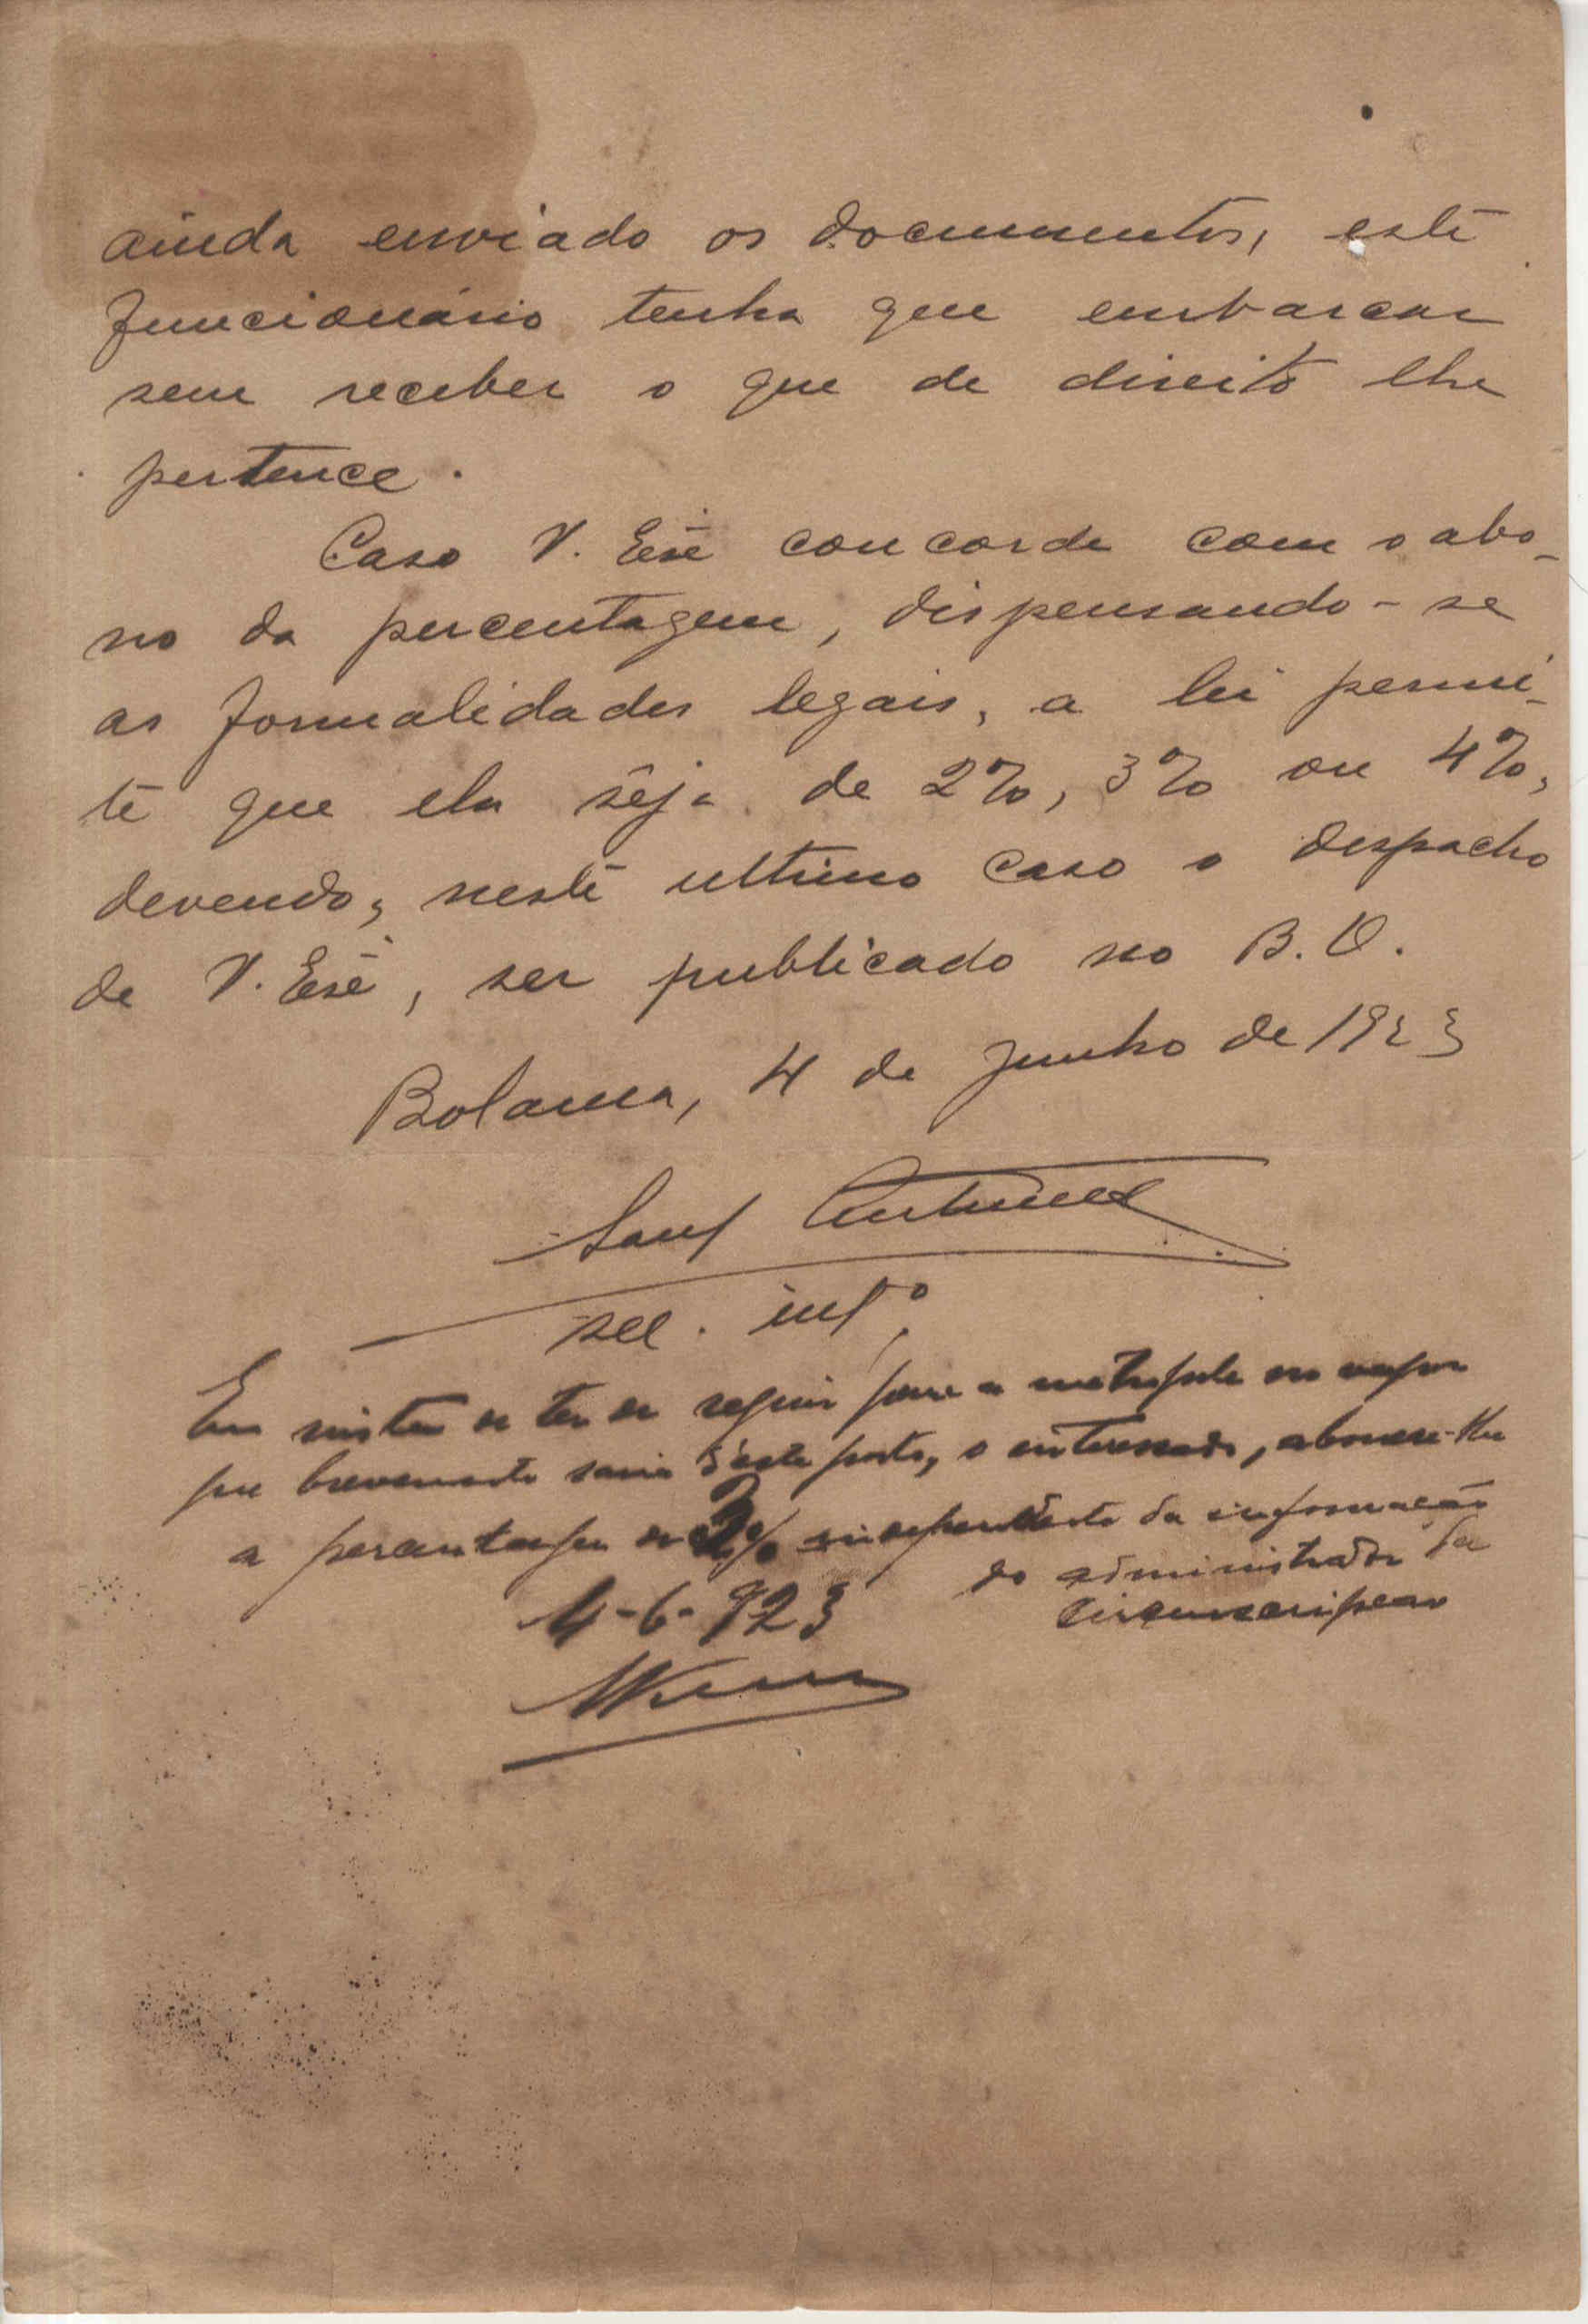 ainda enviado os documentos, este
funcionário tenha que embarcar
sem receber o que de direito lhe
pertence.
Caso V. Exª concorde com o abo-
no da percentagem, dispensando-se
as formalidades legais, a lei permi-
te que ela sêja de 2%, 3% ou 4%,
devendo, neste ultimo caso o despacho
de V. Exª, ser publicado no B. O.
Bolama, 4 de Junho de 1923
Antunes
sec. intº
Em vista de ter de seguir para a metropole no vapor
que brevemente saria d'este porto, o interessado, abone-se-lhe
a percentagem de 3% independente da informação
do administrador da
circunscripcao
4-6-923